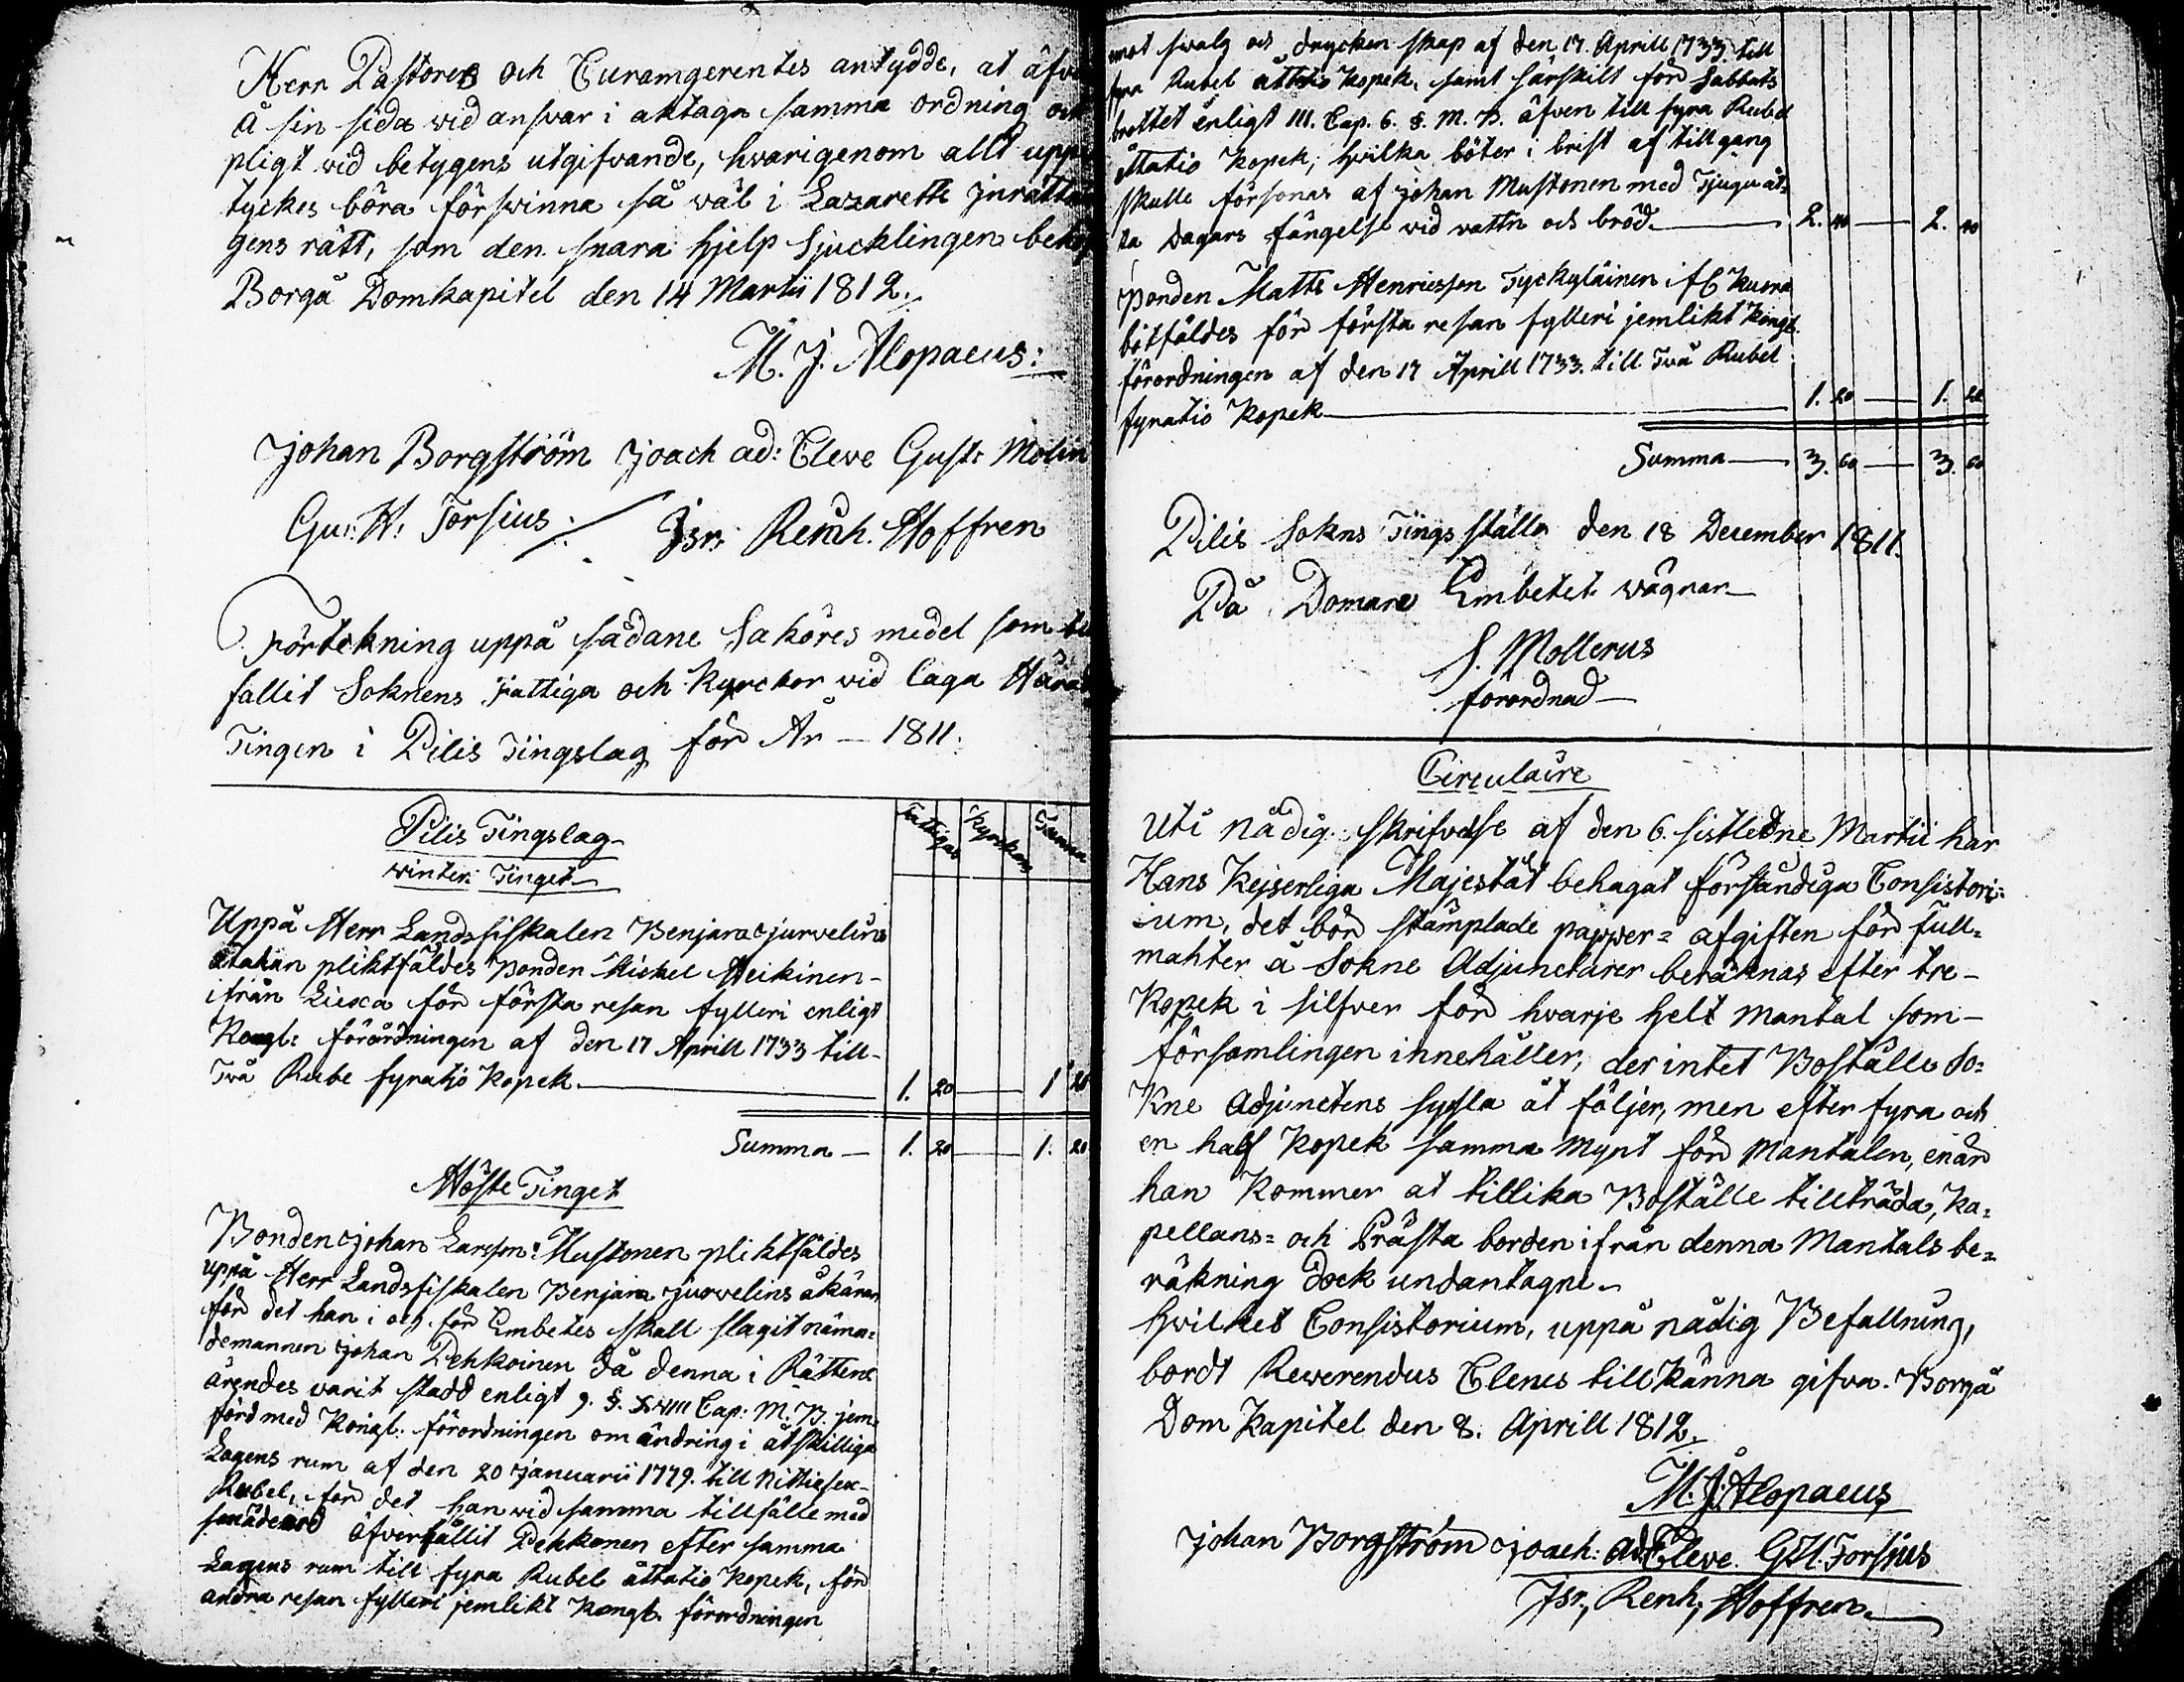 Herr Pastores och Curamgerentes antydde, at äfv
å sin sida wid answar i akttaga samma ordning och
pligt wid betygens utgifvande, hvarigenom allt upp
tyckes böra förswinna så wäl i Lazaretts Jnrättn
gens rätt, som den snara hjelp Sjucklingen behöf
Borgå Domkapitel den 14 Martii 1812.
M. J. Alopaeus:
Johan Borgström Joach ad: Cleve Gust: Molin
Gu: H: Forsius. / Jsr. Reinh. Hoffren
Förtekning uppå sådane Saköres medel som til
fallit Soknens Fattiga och Kyrckor wid Laga Härad
Tingen i Pilis Tingslag för År — 1811.
Pilis Tingslag
Winter Tinget
Fattigas Kyrckans Summa
Uppå Herr Landsfiskalen Benjam Jurvelins
åtahan pliktfäldes Bonden Mickel Heikinen
ifrån Liexa för första resan fylleri enligt
Kongl: förordningen af den 17 Aprill 1733 till
Två Rube fyratjo Kopek. — 1. 20 — 1 20
Summa — 1. 20 — 1. 20
Höste Tinget
Bonden Johan Larsson Mustonen pliktfäldes
uppå Herr Landsfiskalen Benjam Jurvelins åkäran
för det han i och för Embetes skall slagit näm=
demannen Johan Pehkoinen då denna i Rättens
ärendes varit stadd enligt 9. §. XVIII Cap: M. B. jem
förd med Kongl. förordningen om ändring i åtskilliga
Lagens rum af den 20 Januarii 1779. till Nittiosex
Rubel, för det han wid samma tillfälle med
smädeord öfverfallit Pehkonen efter samma
Lagens rum till fyra Rubel åttatio Kopek, för
andra resan fylleri jemlikt Kongl. förordningen
mot swalg och dryckenskap af den 17. Aprill 1733 till
fyra Rubel åttatio Kopek, samt särskilt för Sabbats
brottet enligt III. Cap. 6. §. M. B. äfven till fyra Rubel
åttatio Kopek, hwilka böter i brist af tillgång
skulle försonas af Johan Mustonen med Tjuguåt=
ta Dagars fängelse wid vattn och bröd. — 2. 40 — 2. 40
Bonden Matts Henricsson Tyckyläinen if Kuora
bötfäldes för första resan fylleri jemlikt Kongl.
förordningen af den 17 Aprill 1733. till Två Rubel
fyratio Kopek — 1. 20 — 1. 20
Summa — 3. 60 — 3. 60
Pilis Sokns Tings ställe den 18 December 1811.
På Domare Embetet wägnar
S. Mollerus
förordnad
Circulaire
Uti nådig skrifvelse af den 6. sistledne Martii har
Hans Kejserliga Majestät behagat förständiga Consistori=
ium, det bör stämplade papper= afgiften för full=
mahter å Sokne Adjuncturer beräknas efter tre
Kopek i silfver för hvarje helt Mantal som
församlingen innehåller, der intet Boställe So=
Kne Adjunctens syssla åt följer, men efter fyra och
en half Kopek samma Mynt för Mantalen, enär
han Kommer at tillika Boställe tillträda, Ka=
pellans= och Prästa borden ifrån denna Mantals be=
räkning dock undantagne
Hvilket Consistorium, uppå nådig Befallning,
bordt Rewerendus Clerus till Känna gifva. Borgå
Dom Kapitel den 8. Aprill 1812.
M. J. Alopaeus
Johan Borgström Joach: ad: Cleve. G: H. Forsius
Jsr, Renh, Hoffren